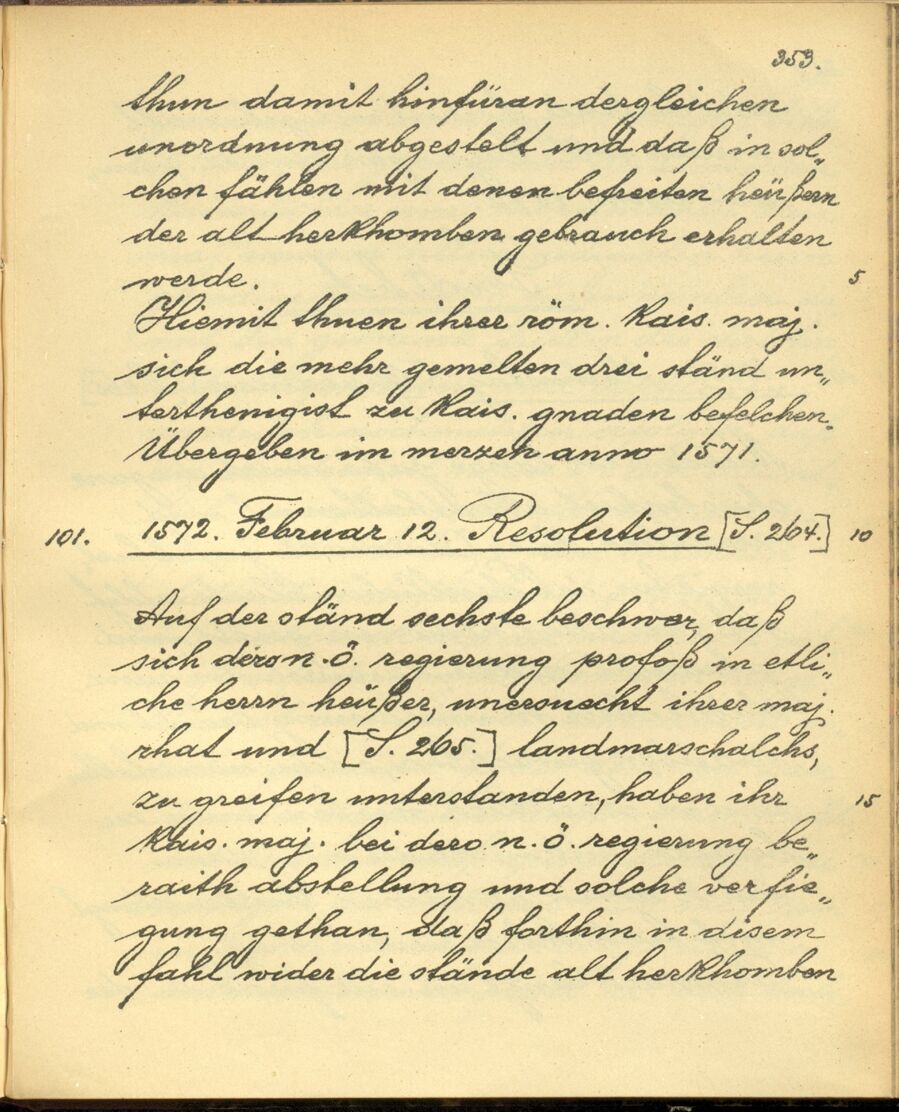 353.
thun damit hinfüran dergleichen
unordnung abgestelt und daß in sol„
chen fählen mit denen befreiten heüßern
der alt herkhomben gebrauch erhalten
werde. 5
Hiemit thuen ihrer röm. kais. maj.
sich die mehr gemelten drei ständ un„
terthenigist zu kais. gnaden befelchen.
Übergeben im merzen anno 1571.
101. 1572. Februar 12. Resolution [S. 264.] 10
Auf der ständ sechste beschwer, daß
sich dero n. ö. regierung profoß in etli„
che herrn heüßer, unersuecht ihrer maj.
rhat und [S. 265.] landmarschalchs,
zu greifen unterstanden, haben ihr 15
kais. maj. bei dero n. ö. regierung be„
raith abstellung und solche verfie„
gung gethan, daß forthin in disem
fahl wider die stände alt herkhomben